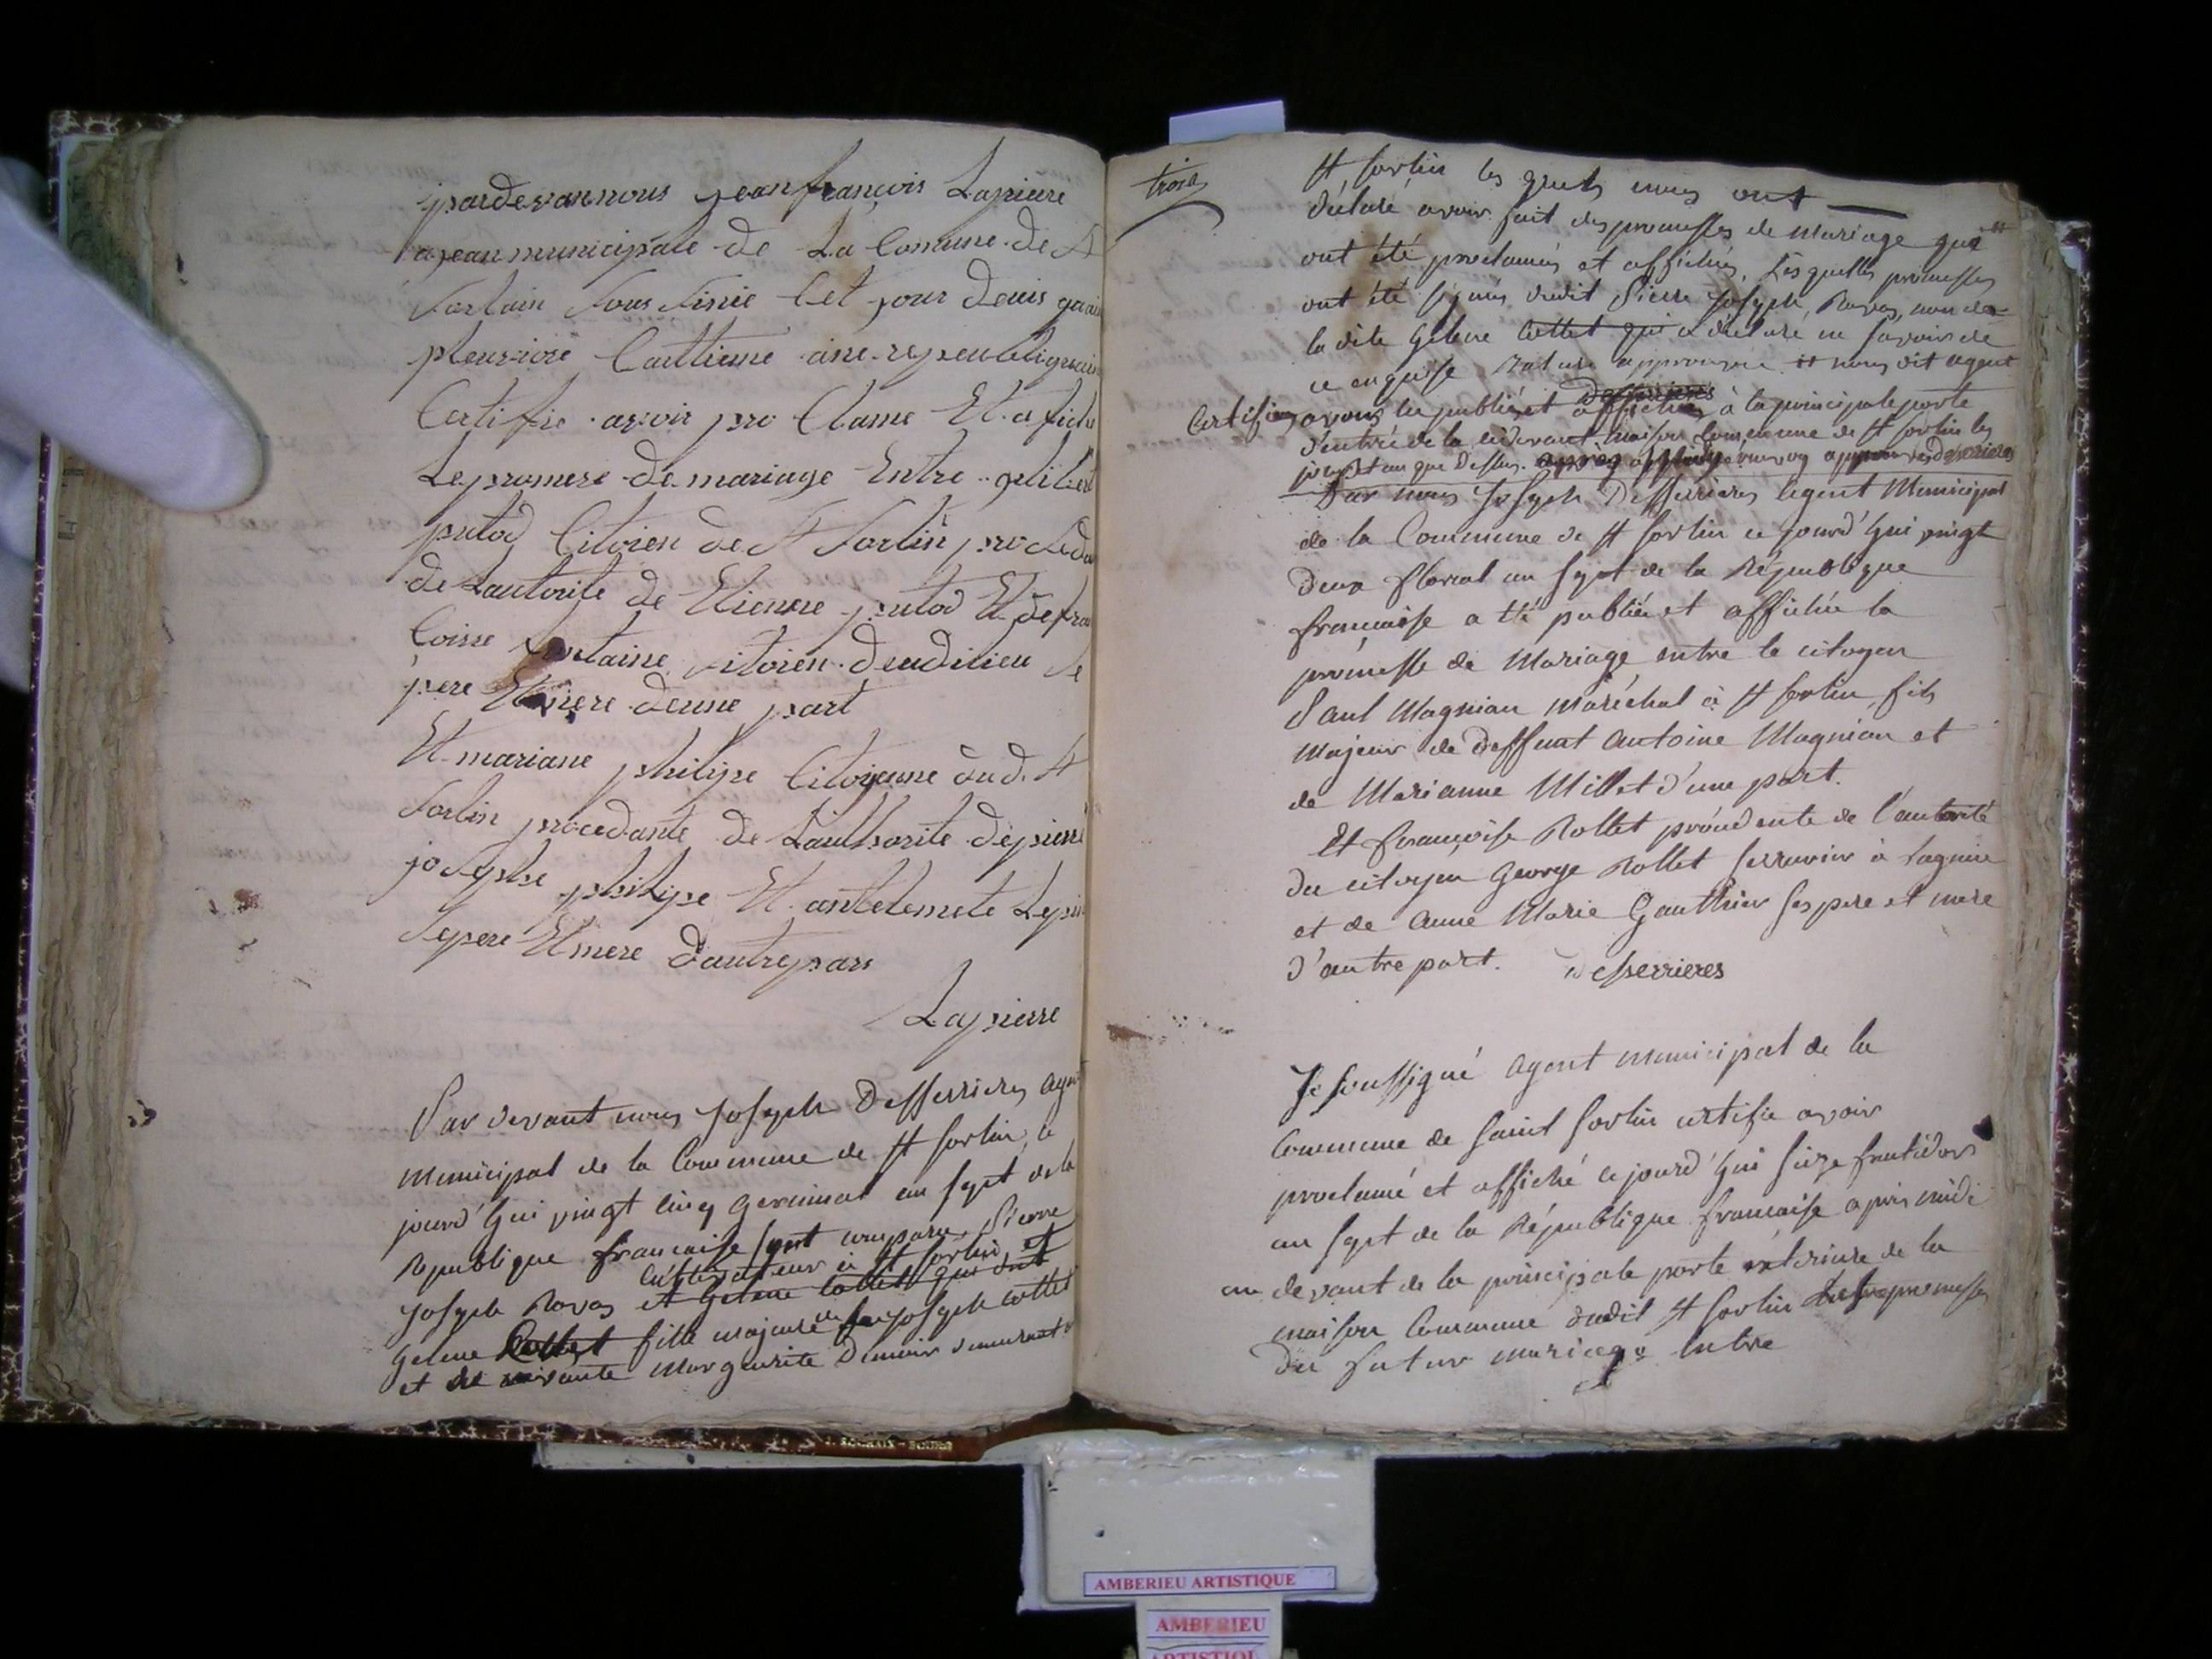 pardevannous jean françois Lapierre
ajean municipale de La Comune de St
Sorlain Sous Sinie Cet jour deuis
pleuviore Cattieme ane republiquain
Certifie avoir pro Clame Et afiche
Le promese de mariage Entre philibert
putod Citoien de St Sorlin proseda
de Lautorite de Etienne putod Et de fran
Coisse fontaine sitoien dudilieu se
pere Et mere deune part
Et mariane philipe Citoyenne dud. St
Sorlin procedante de Lauthorite de pierre
josephe philipe Et antelemete Lepin
sepere Et mere dautre pars
Lapierre
Par devant nous Joseph Desserrieres agent
municipal de la Commune de St Sorlin, ce
jourd'hui vingt cinq germinal an sept de la
Republique française sont comparu Pierre
cultivateur à St Sorlin, et
Joseph Ravas et Gelene Collet qui ont
Gelene Collet fille majeure de feu Joseph Collet
et de vivante Marguerite demeurant à
trois
St Sorlin les quels nous ont
déclaré avoir fait des promesses de mariage qui
ont été proclamées et affichées. Les quelles promesses
ont été signées dudit Pierre Joseph Ravas, non de
la dite Gelene Collet qui a déclaré ne savoir de
ce enquise rature approuvée. et nous dit agent
Desserrieres
Certifions avons lu publié et affichés à la principale porte
d'entrée de la cidevant maison Commune de St Sorlin les
jour et an que dessus. Desserrieres
Par nous Joseph Desserrieres Agent Municipal
de la Commune de St Sorlin ce jourd'hui vingt
deux floreal an sept de la République
française a été publiée et affichée la
promesse de Mariage entre le citoyen
Paul Magnian Maréchal à St Sorlin, fils
Majeur de deffunt Antoine Magnian et
de Marianne Millet d'une part.
Et Françoise Rollet procédente de l'autorité
du citoyen George Rollet serrurier à Lagnieu
et de Anne Marie Gauthier ses pere et mere
d'autre part. Desserrieres
Je soussigné Agent municipal de la
Commune de Saint Sorlin certifie avoir
proclamé et affiché ce jourd'hui seize fructidor
an sept de la République française après midi
au devant de la principale porte extérieure de la
maison Commune dudit St Sorlin les promesses
du futur mariage entre
AMBERIEU ARTISTIQUE
AMBERIEU
ARTISTIQ